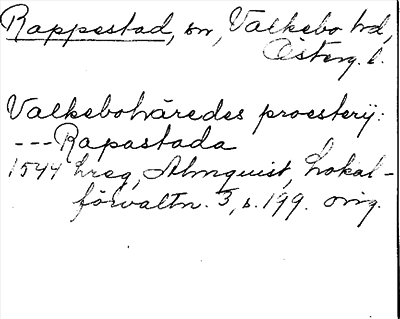 Rappestad, sn, Valkebo hd,
Österg. l.
Valkebohäredes proesterij:
--- Rapastada
1544 hreg, Almquist, Lokal-
förvaltn. 3, s. 199. orig.